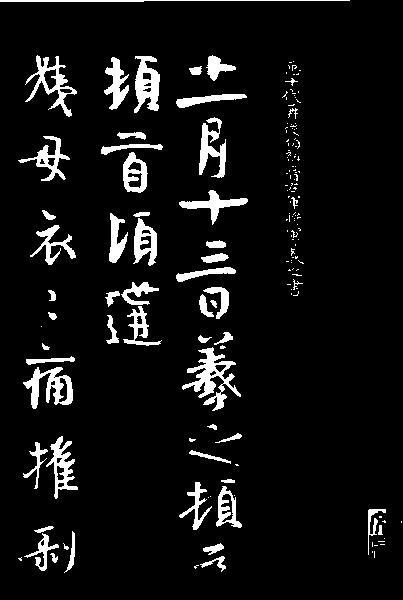 臣十代再從伯祖晉右軍將軍羲之書
十一月十三日羲之頓首
頓首頃遘
姨母哀〻痛摧剝